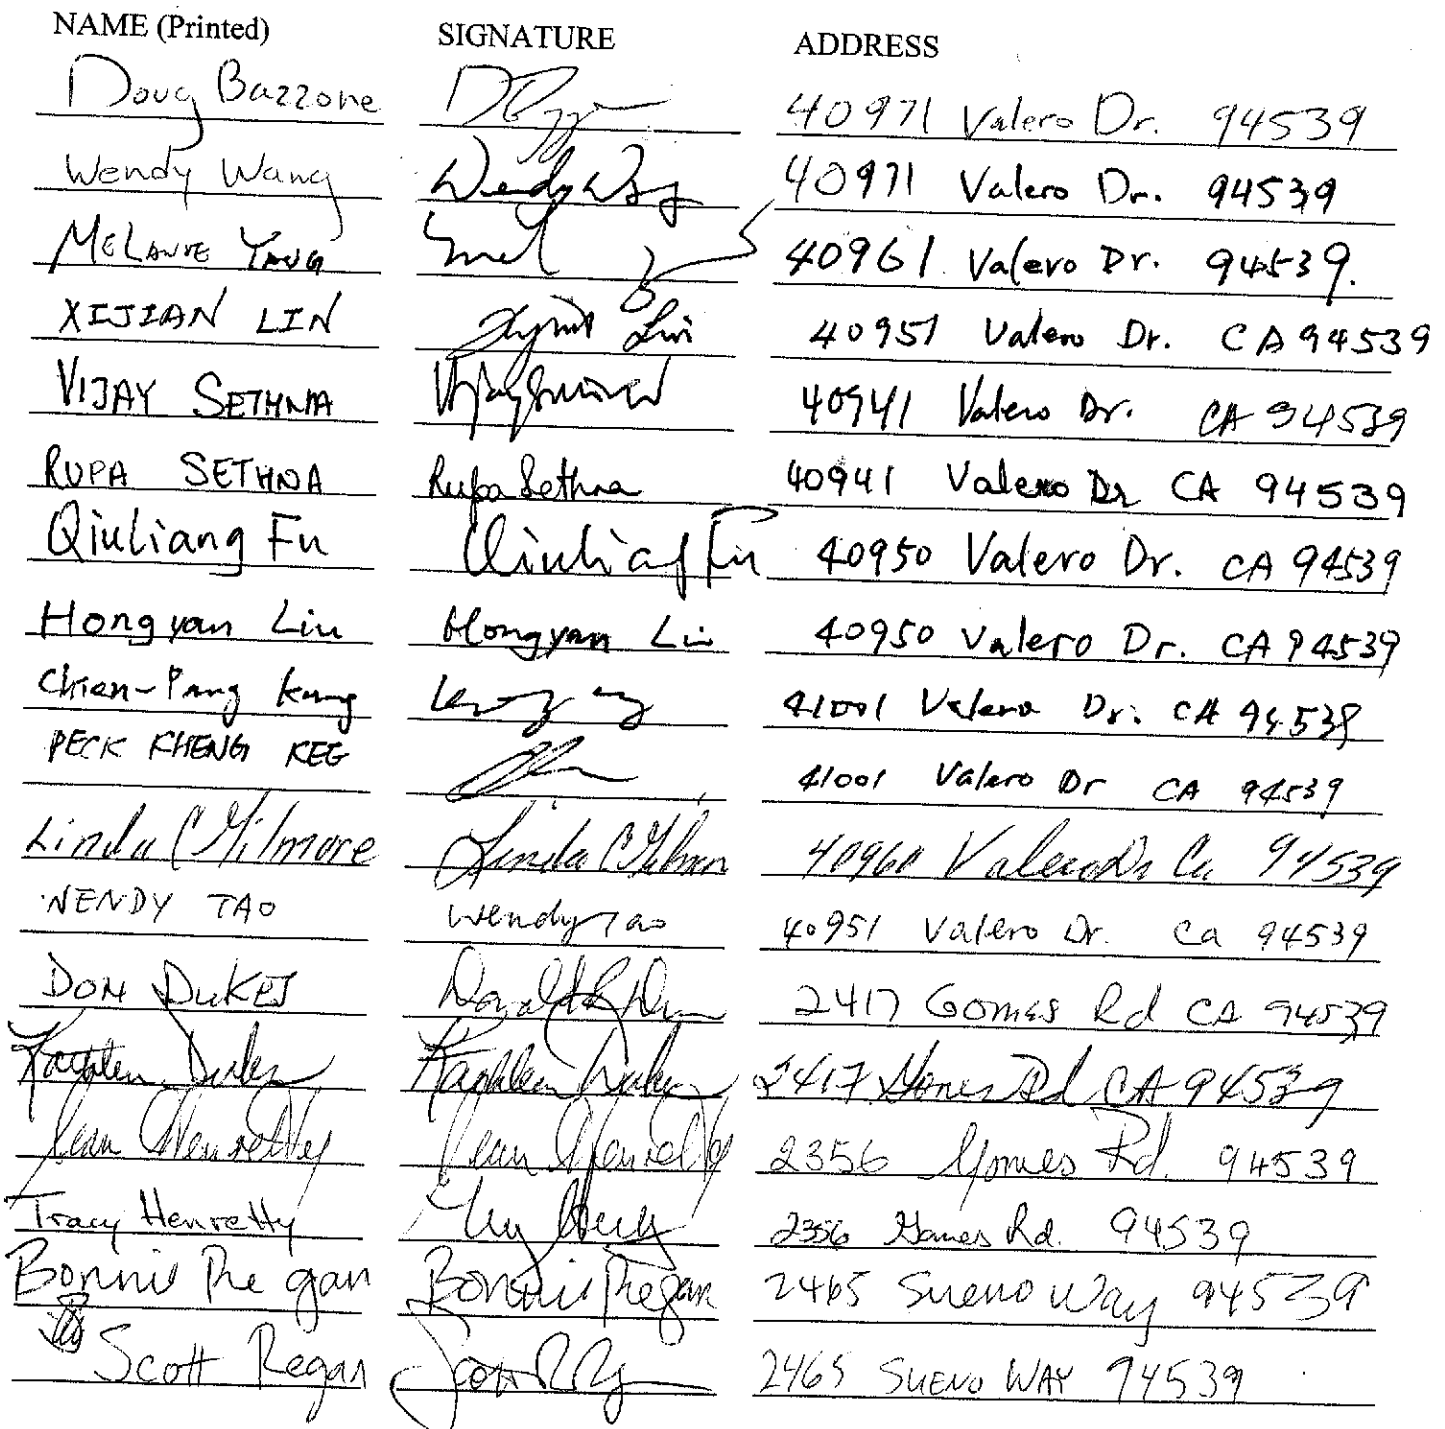 NAME (Printed) SIGNATURE ADDRESS
Doug Bazzone 40971 Valero Dr. 94539
Wendy Wang Wendy Wang 40971 Valero Dr. 94539
MELANIE YANG 40961 Valero Dr. 94539.
XIJIAN LIN Lin 40951 Valero Dr. CA 94539
VIJAY SETHNA 40941 Valero Dr. CA 94539
RUPA SETHNA Rupa Sethna 40941 Valero Dr CA 94539
Qiuliang Fu Qiuliang Fu 40950 Valero Dr. CA 94539
Hongyan Liu Hongyan Liu 40950 Valero Dr. CA 94539
Chien-Pang Kung 41001 Valero Dr. CA 94539
PECK KHENG KEG 41001 Valero Dr CA 94539
Linda C Gilmore Linda C Gilmore 40960 Valero Dr Ca 94539
WENDY TAO Wendy Tao 40951 Valero Dr. Ca 94539
DON DUKES Donald 2417 Gomes Rd CA 94539
Kathleen Dukes Kathleen Dukes 2417 Gomes Rd CA 94539
Jean Henretty Jean Henretty 2356 Gomes Rd. 94539
Tracy Henretty 2356 Gomes Rd. 94539
Bonnie Regan Bonnie Regan 2465 Sueno Way 94539
Scott Regan Scott 2465 SUENO WAY 94539